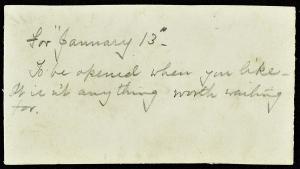 For "January 13"-
To be opened when you like-
It isn't anything worth waiting
for.